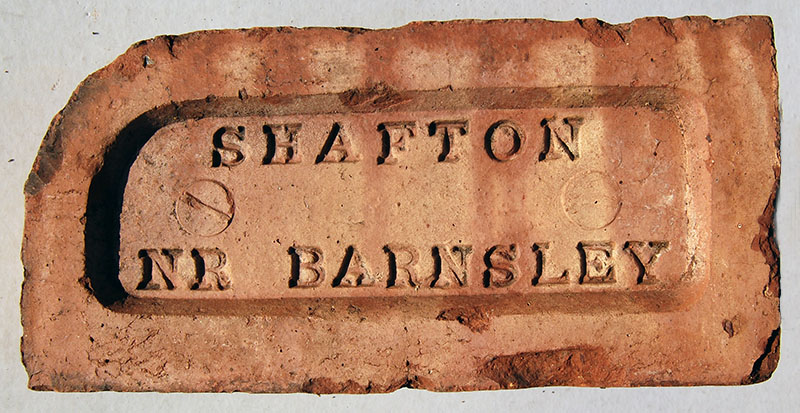 SHAFTON
NR BARNSLEY